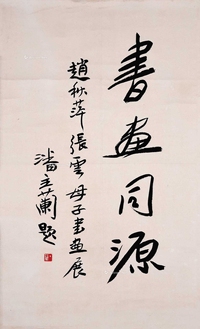 書畫同源
趙秋萍張雲母子書畫展
潘主蘭題